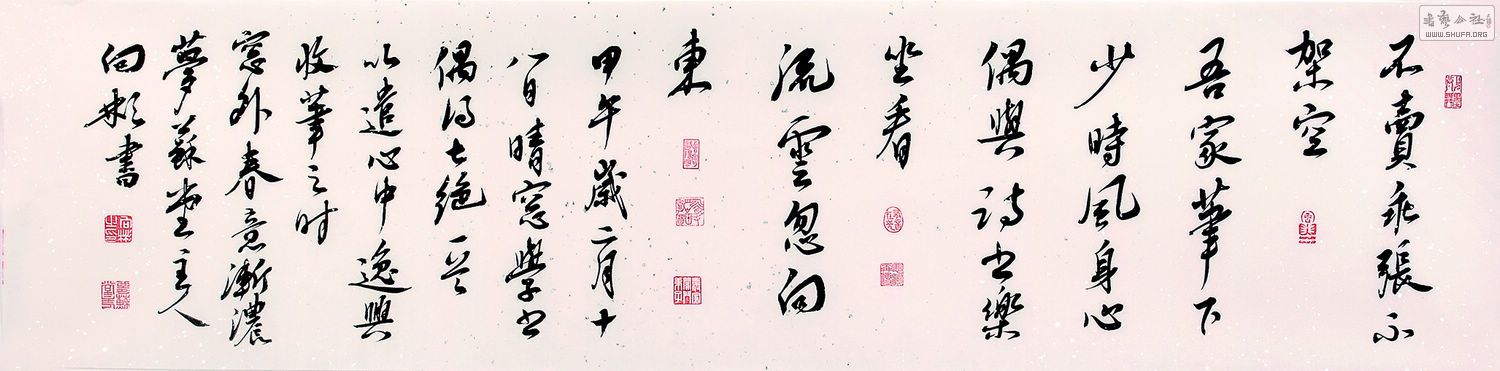 不賣乖張不
架空
吾家筆下
少時風身心
偶與詩書樂
坐看
流雲忽向
東
甲午歲二月十
八日晴窓學書
偶得七絶一首
以遣心中逸興
收筆之時
窓外春意漸濃
夢蘇堂主人
向彬書
書藝公社
WWW.SHUFA.ORG